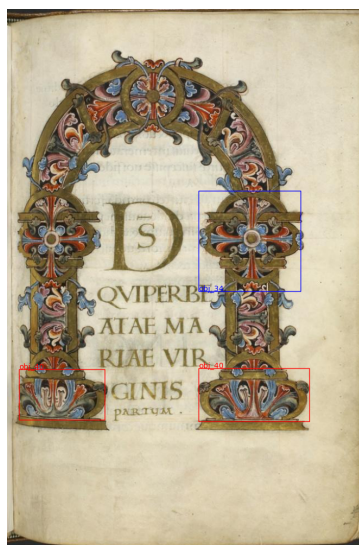 DS̄
QVI PER BE
ATAE MA
RIAE VIR
GINIS
PARTUM .
obj-34
obj-40